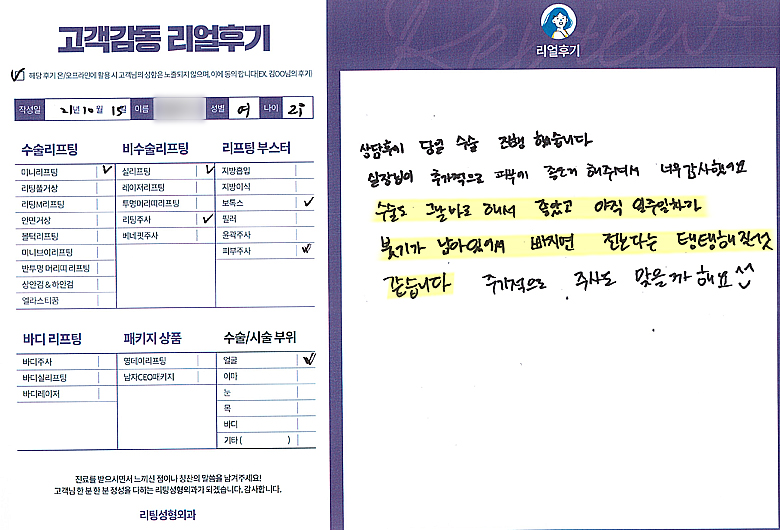 고객감동 리얼후기
해당 후기 온/오프라인에 활용 시 고객님의 성함은 노출되지 않으며, 이에 동의 합니다(EX. 김OO님의 후기)
작성일 21년 10월 15일 이름 성별 여 나이
수술리프팅
미니리프팅
리팅풀거상
리팅M리프팅
안면거상
블턱리프팅
미니브이리프팅
반투명 머리띠 리프팅
상안검 & 하안검
엘라스티꿈
비수술리프팅
실리프팅
레이저리프팅
투명머리띠리프팅
리팅주사
비네핏주사
리프팅 부스터
지방흡입
지방이식
보톡스
필러
윤곽주사
피부주사
바디 리프팅
바디주사
바디실리프팅
바디레이저
패키지 상품
명데이리프팅
남자CEO패키지
수술/시술 부위
얼굴
이마
눈
목
바디
기타 ( )
진료를 받으시면서 느끼신 점이나 칭찬의 말씀을 남겨주세요!
고객님 한 분 한 분 정성을 다하는 리팅성형외과가 되겠습니다. 감사합니다.
리팅성형외과
Review
리얼후기
상담후에 당일 수술 진행 했습니다
실장님이 추가적으로 피부에 좋은거 해주셔서 너무감사했어요
수술도 그날바로 해서 좋았고 아직 일주일차라
붓기가 남아있어서 빠지면 전보다는 탱탱해질것
같습니다 추가적으로 주사도 맞을까 해요^^